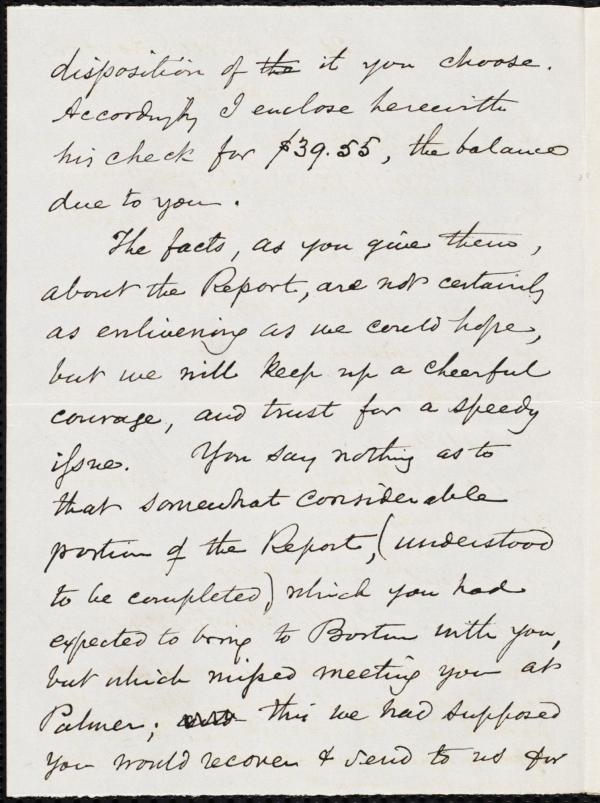 disposition of the it you choose.
Accordingly I enclose herewith
his check for $39.55, the balance
due to you.
The facts, as you give them,
about the Report, are not certainly
as enlivening as we could hope,
but we will keep up a cheerful
courage, and trust for a speedy
issue. You say nothing as to
that somewhat considerable
portion of the Report, (understood
to be completed) which you had
expected to bring to Boston with you,
but which missed meeting you at
Palmer; this we had supposed
you would recover & send to us for